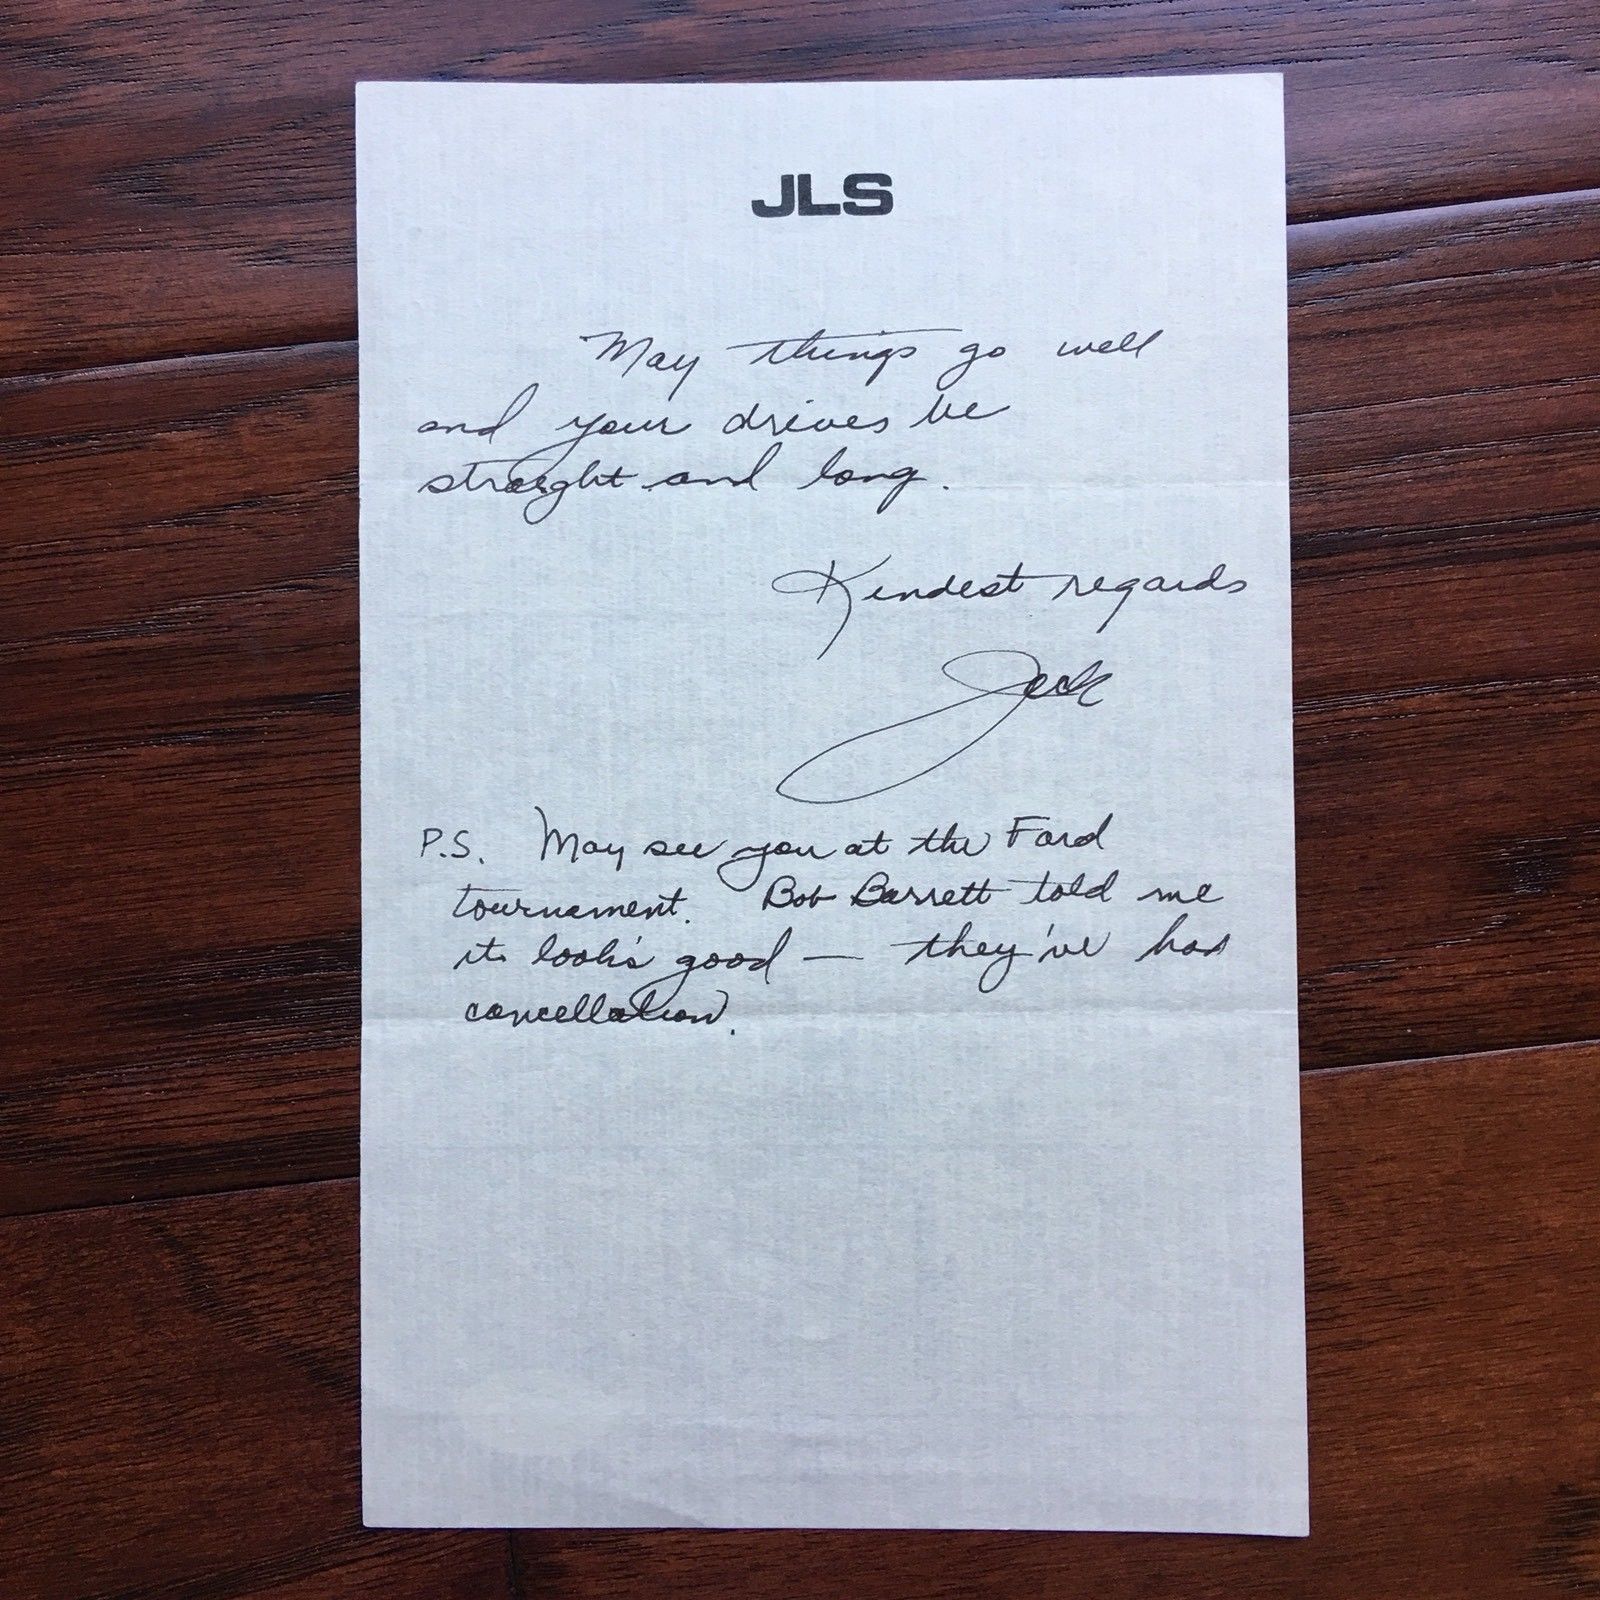 JLS
May things go well
and your drives be
straight and long.
Kindest regards
Jack
P.S. May see you at the Ford
tournament. Bob Barrett told me
it look's good — they've had
cancellation.